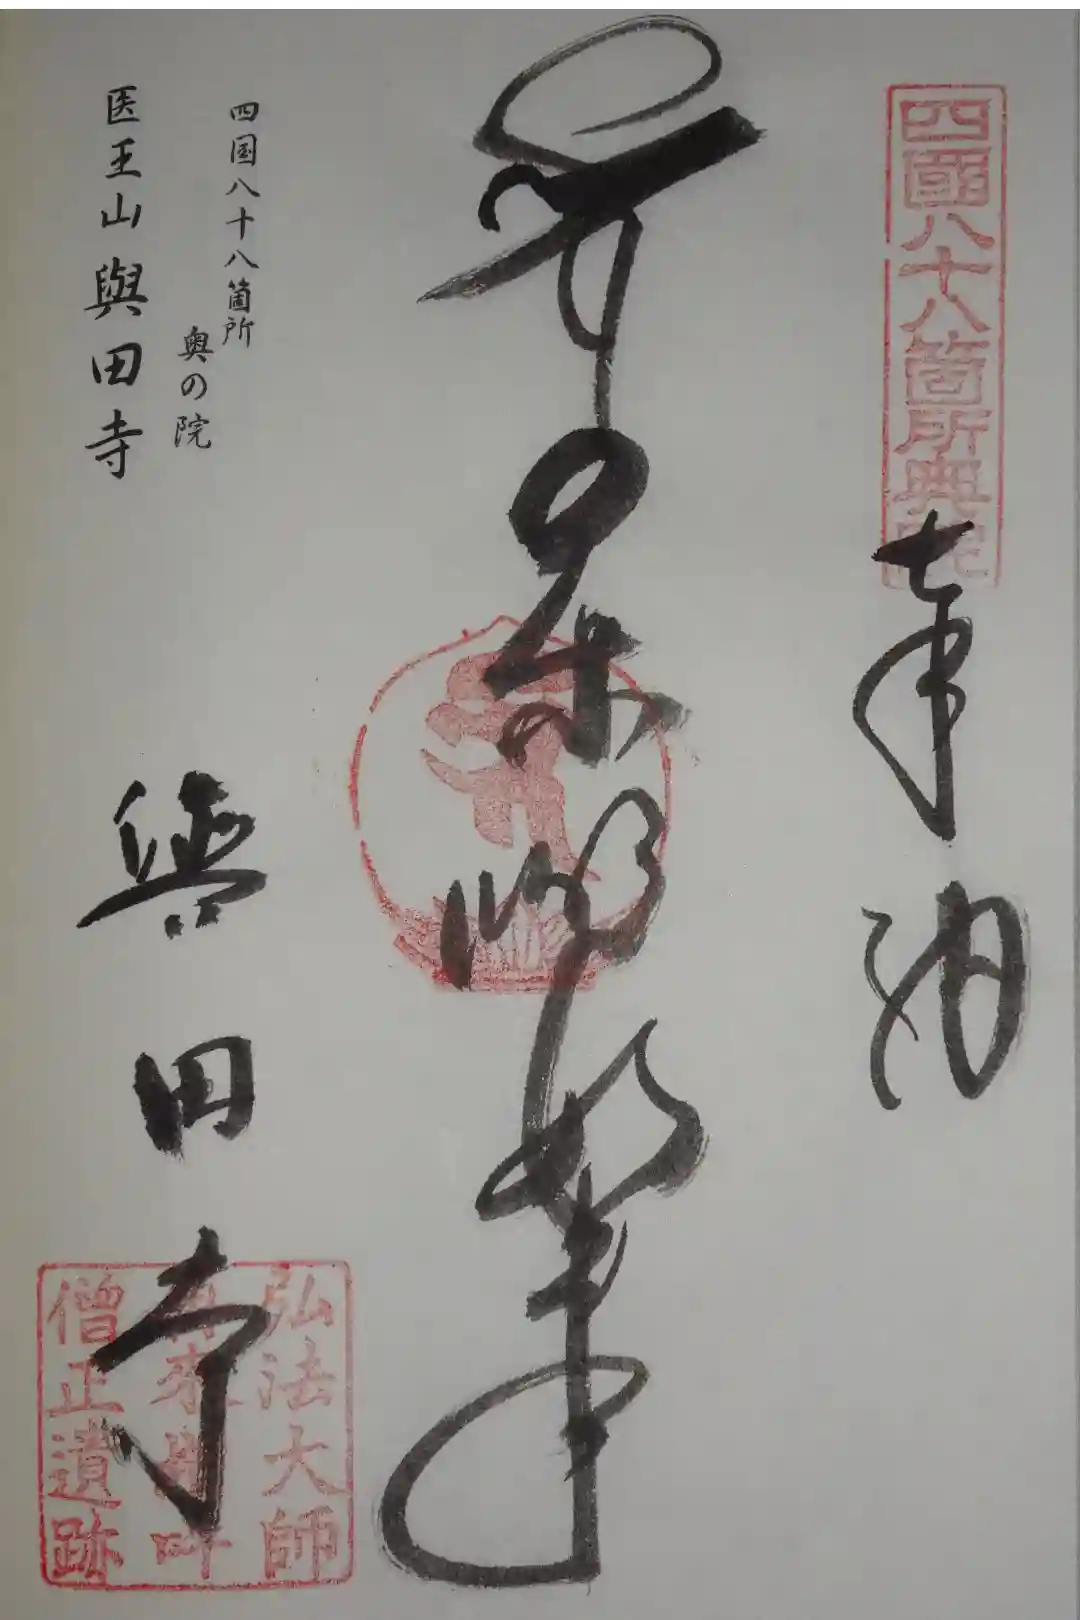 四國八十八箇所奥院
奉納
薬師如来
四国八十八箇所
奥の院
医王山與田寺
與田寺
弘法大師
再来増吽
僧正遺跡